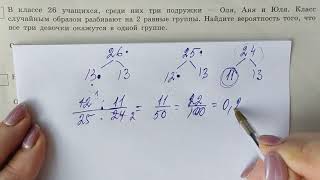 В классе 26 учащихся, среди них три подружки — Оля, Аня и Юля. Класс
случайным образом разбивают на 2 равные группы. Найдите вероятность того, что
все три девочки окажутся в одной группе.
26 25 24
13 13 13 13 11 13
12/25 · 11/24 2 = 11/50 = 22/100 = 0,2